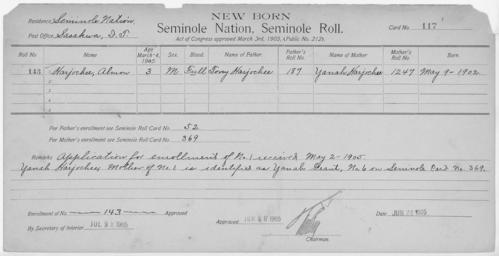 NEW BORN
Residence Seminole Nation.
Seminole Nation, Seminole Roll.
Card No. 117
Post Office Sasakwa, I.T.
Act of Congress approved March 3rd, 1905, (Public No. 212).
Roll No. Name Age March 4, 1905 Sex. Blood. Name of Father. Father's Roll No. Name of Mother Mother's Roll No. Born.
143 Harjochee, Almon 3 M Full Tony Harjochee 187 Yanah Harjochee 1247 May 9-1902
2
3
4
5
For Father's enrollment see Seminole Roll Card No. 52
For Mother's enrollment see Seminole Roll Card No. 369
Remarks Application for enrollment of No. 1 received May 2-1905.
Yanah Harjochee, Mother of No. 1 is identified as Yanah Grant, No. 6 on Seminole Card No. 369.
Enrollment of No. 143 Approved
By Secretary of Interior JUL 1905
Approved JUN 1905
Chairman.
Date JUN 1905